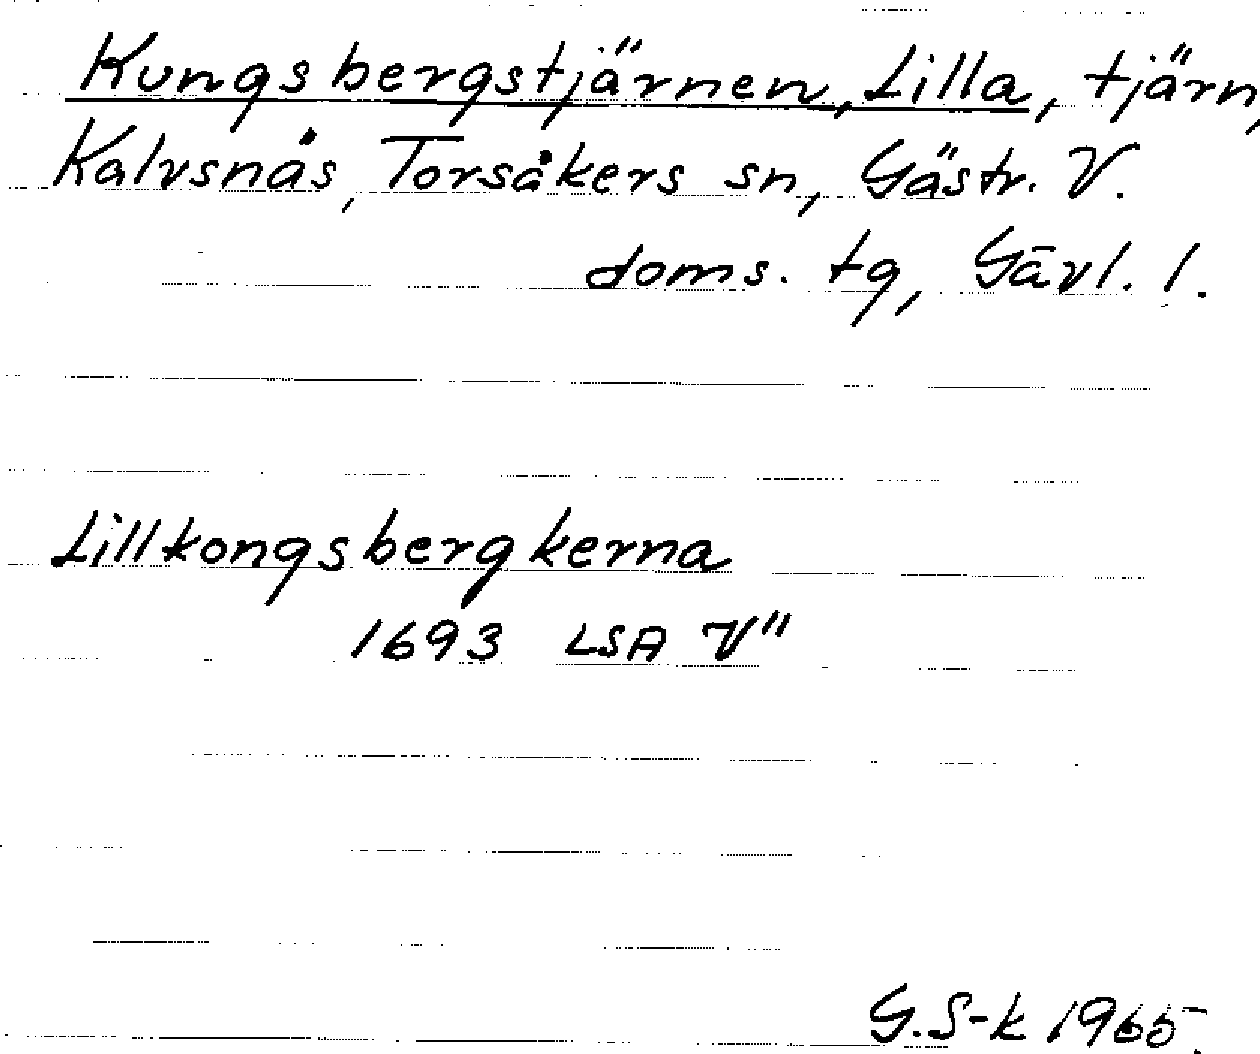 Kungsbergstjärnen, Lilla, tjärn,
Kalvsnäs, Torsåkers sn, Gästr. V.
doms. tg, Gävl. l.
Lillkongsbergkerna
1693 LSA V"
G.S-k 1965.